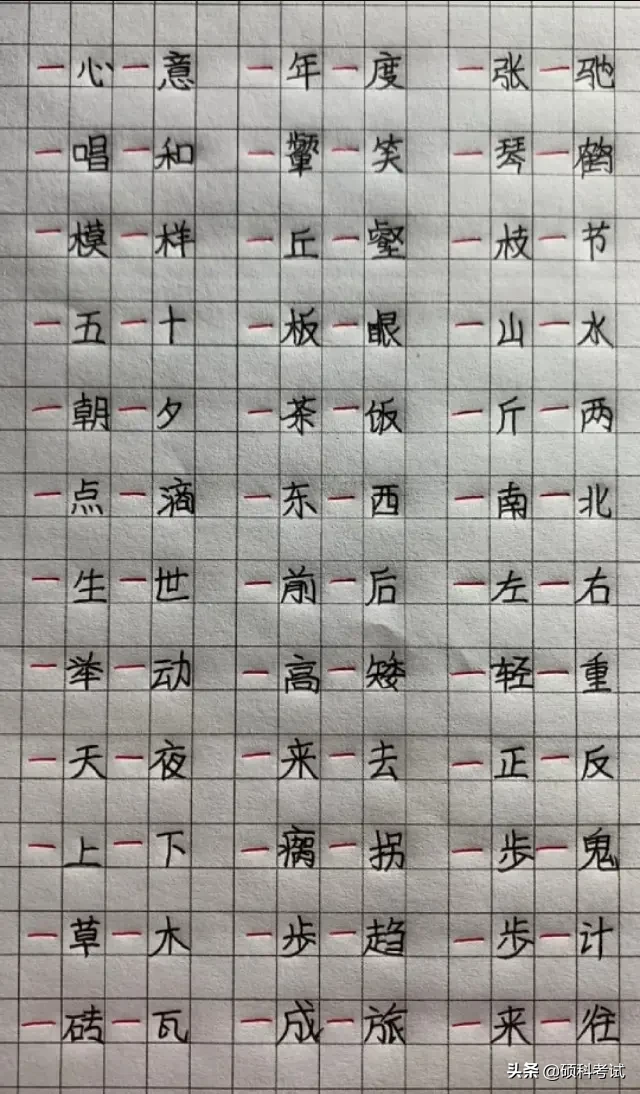 一心一意 一年一度 一张一驰
一唱一和 一颦一笑 一琴一鹤
一模一样 一丘一壑 一枝一节
一五一十 一板一眼 一山一水
一朝一夕 一茶一饭 一斤一两
一点一滴 一东一西 一南一北
一生一世 一前一后 一左一右
一举一动 一高一矮 一轻一重
一天一夜 一来一去 一正一反
一上一下 一瘸一拐 一步一鬼
一草一木 一步一趋 一步一计
一砖一瓦 一成一旅 一来一往
头条 @硕科考试